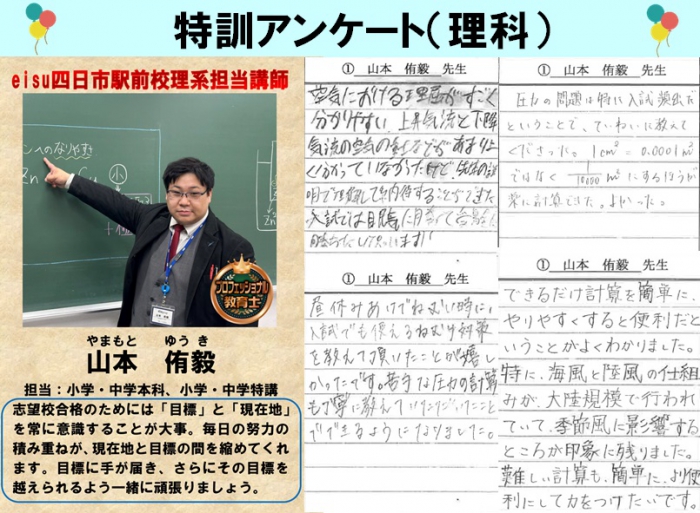 特訓アンケート（理科）
eisu四日市駅前校理系担当講師
ンへのなりやすさ
Zn
小
プロフェッショナル
教育士
やまもと ゆうき
山本 侑毅
担当：小学・中学本科、小学・中学特講
志望校合格のためには「目標」と「現在地」
を常に意識することが大事。毎日の努力の
積み重ねが、現在地と目標の間を縮めてくれ
ます。目標に手が届き、さらにその目標を
越えられるよう一緒に頑張りましょう。
① 山本 侑毅 先生
空気における理屈がすごく
分かりやすい。上昇気流と下降
気流の空気の
① 山本 侑毅 先生
圧力の問題は特に入試頻出だ
ということで、ていねいに教えて
くださった。1cm²=0.0001m²
ではなく 1/10000 m²にするほうが
楽に計算できた。よかった。
① 山本 侑毅 先生
昼休みあけでねむい時に、
入試でも使えるねむけ対策
を教えて頂いたことが嬉し
かったです。苦手な圧力の計算
も丁寧に教えていただいたこと
でできるようになりました。
① 山本 侑毅 先生
できるだけ計算を簡単に、
やりやすくすると便利だと
いうことがよくわかりました。
特に、海風と陸風の仕組
みが、大陸規模で行われ
ていて、季節風に影響する
ところが印象に残りました。
難しい計算も、簡単に、より便
利にして力をつけたいです。